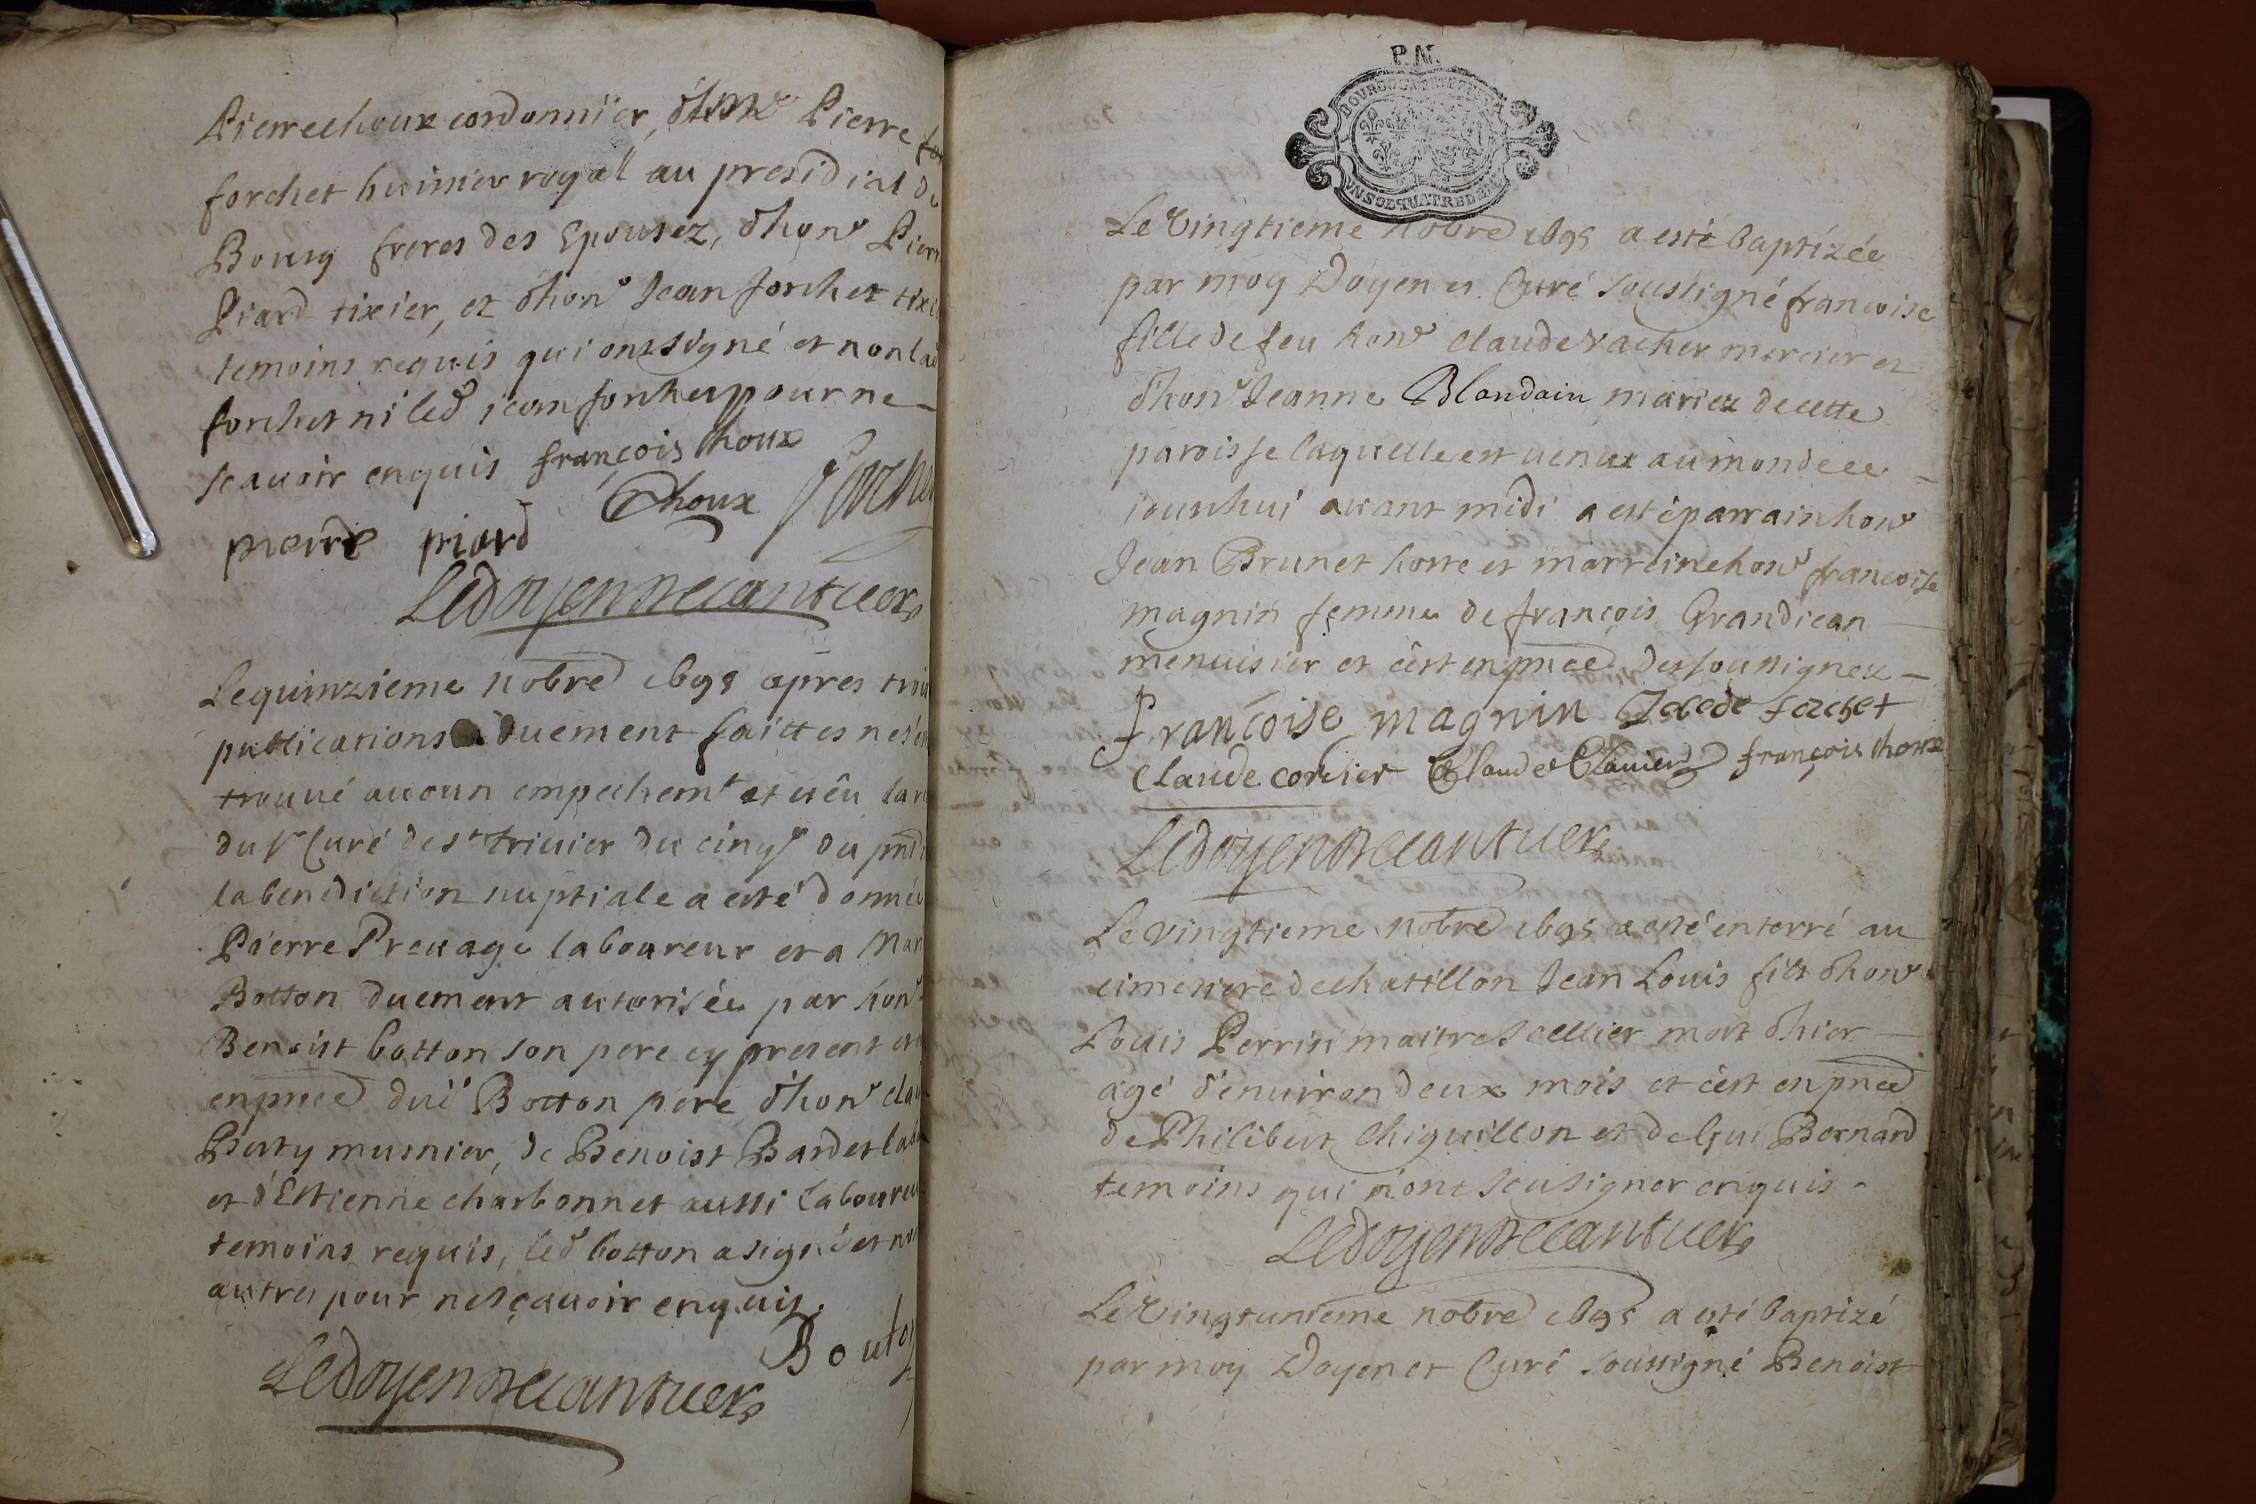 Pierre choux cordonnier, d'hon^e Pierre
forchet huissier royal au presidial de
Bourg freres des Epousez, d'hon^e Pierre
Piard tixier, et d'hon^e Jean forchet
temoins requis qui ont signé et non lad
forchet ni led^t jean forchet pour ne
scavoir enquis françois Choux
Choux
pierre piard
Le doyen
Le quinzieme nobre 1695 apres trois
publications duement faittes ne s'est
trouvé aucun empechem^t et vêu la
du s^r Curé de s^t trivier du cinq^e du pnt
la benediction nuptiale a esté donnée
Pierre Prevage laboureur et a
Botton duement autorisée par hon^e
Benoist botton son pere cy present et
en pnce dud^t Botton pere d'hon^e
Berty musnier, de Benoist Bardet
et d'Estienne charbonnet aussi laboureur
temoins requis, led^t botton a signé et non
autres pour ne sçavoir enquis.
Bouton
Le doyen
P. N.
Le vingtieme nobre 1695 a esté baptizée
par moy Doyen et Curé soussigné françoise
fille de feu hon^e claude vacher mercier et
d'hon^e Jeanne Blondain mariez de cette
paroisse laquelle est venue au monde ce
jourdhui avant midi a esté parrain hon^e
Jean Brunet hoste et marreine hon^e francoise
magnin femme de françois Grandjean
menuisier et c'est en pnce des soussignez
Françoise magnin forchet
Claude cordier Claude françois Choux
Le doyen
Le vingtieme nobre 1695 a esté enterré au
cimetiere de chatillon Jean Louis fils d'hon^e
Louis Perrin maitre sellier mort d'hier
agé d'environ deux mois et c'est en pnce
de Philibert Chiquillon et de Gui Bernard
temoins qui n'ont sceu signer enquis
Le doyen
Le vingtunieme nobre 1695 a esté baptizé
par moy Doyen et Curé soussigné Benoist